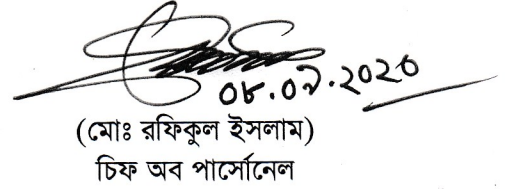 ০৮.০৯.২০২০
(মোঃ রফিকুল ইসলাম)
চিফ অব পার্সোনেল